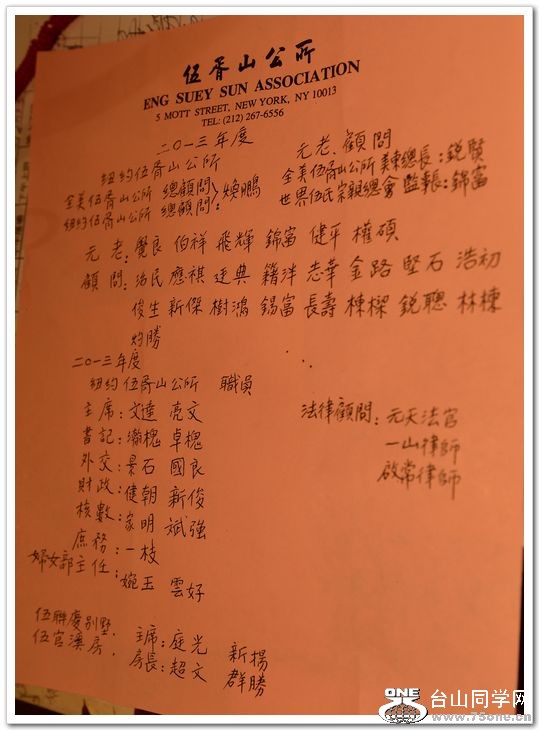 伍胥山公所
ENG SUEY SUN ASSOCIATION
5 MOTT STREET, NEW YORK, NY 10013
TEL: (212) 267-6556
二〇一三年度
紐約伍胥山公所 元老、顧問
全美伍胥山公所 總顧問
紐約伍胥山公所 總顧問：煥鵬
全美伍胥山公所 美東總長：銳賢
世界伍氏宗親總會 監事長：錦富
元老：覺良 伯祥 飛輝 錦富 健平 權碩
顧問：治民 應祺 廷典 籍泮 志華 金路 堅石 浩初
俊生 新傑 樹鴻 錫富 長壽 棟樑 銳聰 林棟
灼勝
二〇一三年度
紐約伍胥山公所 職員
主席：文達 亮文
書記：瀚槐 卓槐
外交：景石 國良
財政：健朝 新俊
核數：家明 斌強
庶務：一枝
婦女部主任：婉玉 雲好
法律顧問：元天法官
一山律師
啟常律師
伍聯慶別墅，主席：庭光 新楊
伍官濱房，房長：超文 群勝
ONE
台山同学网
www.75one.cn